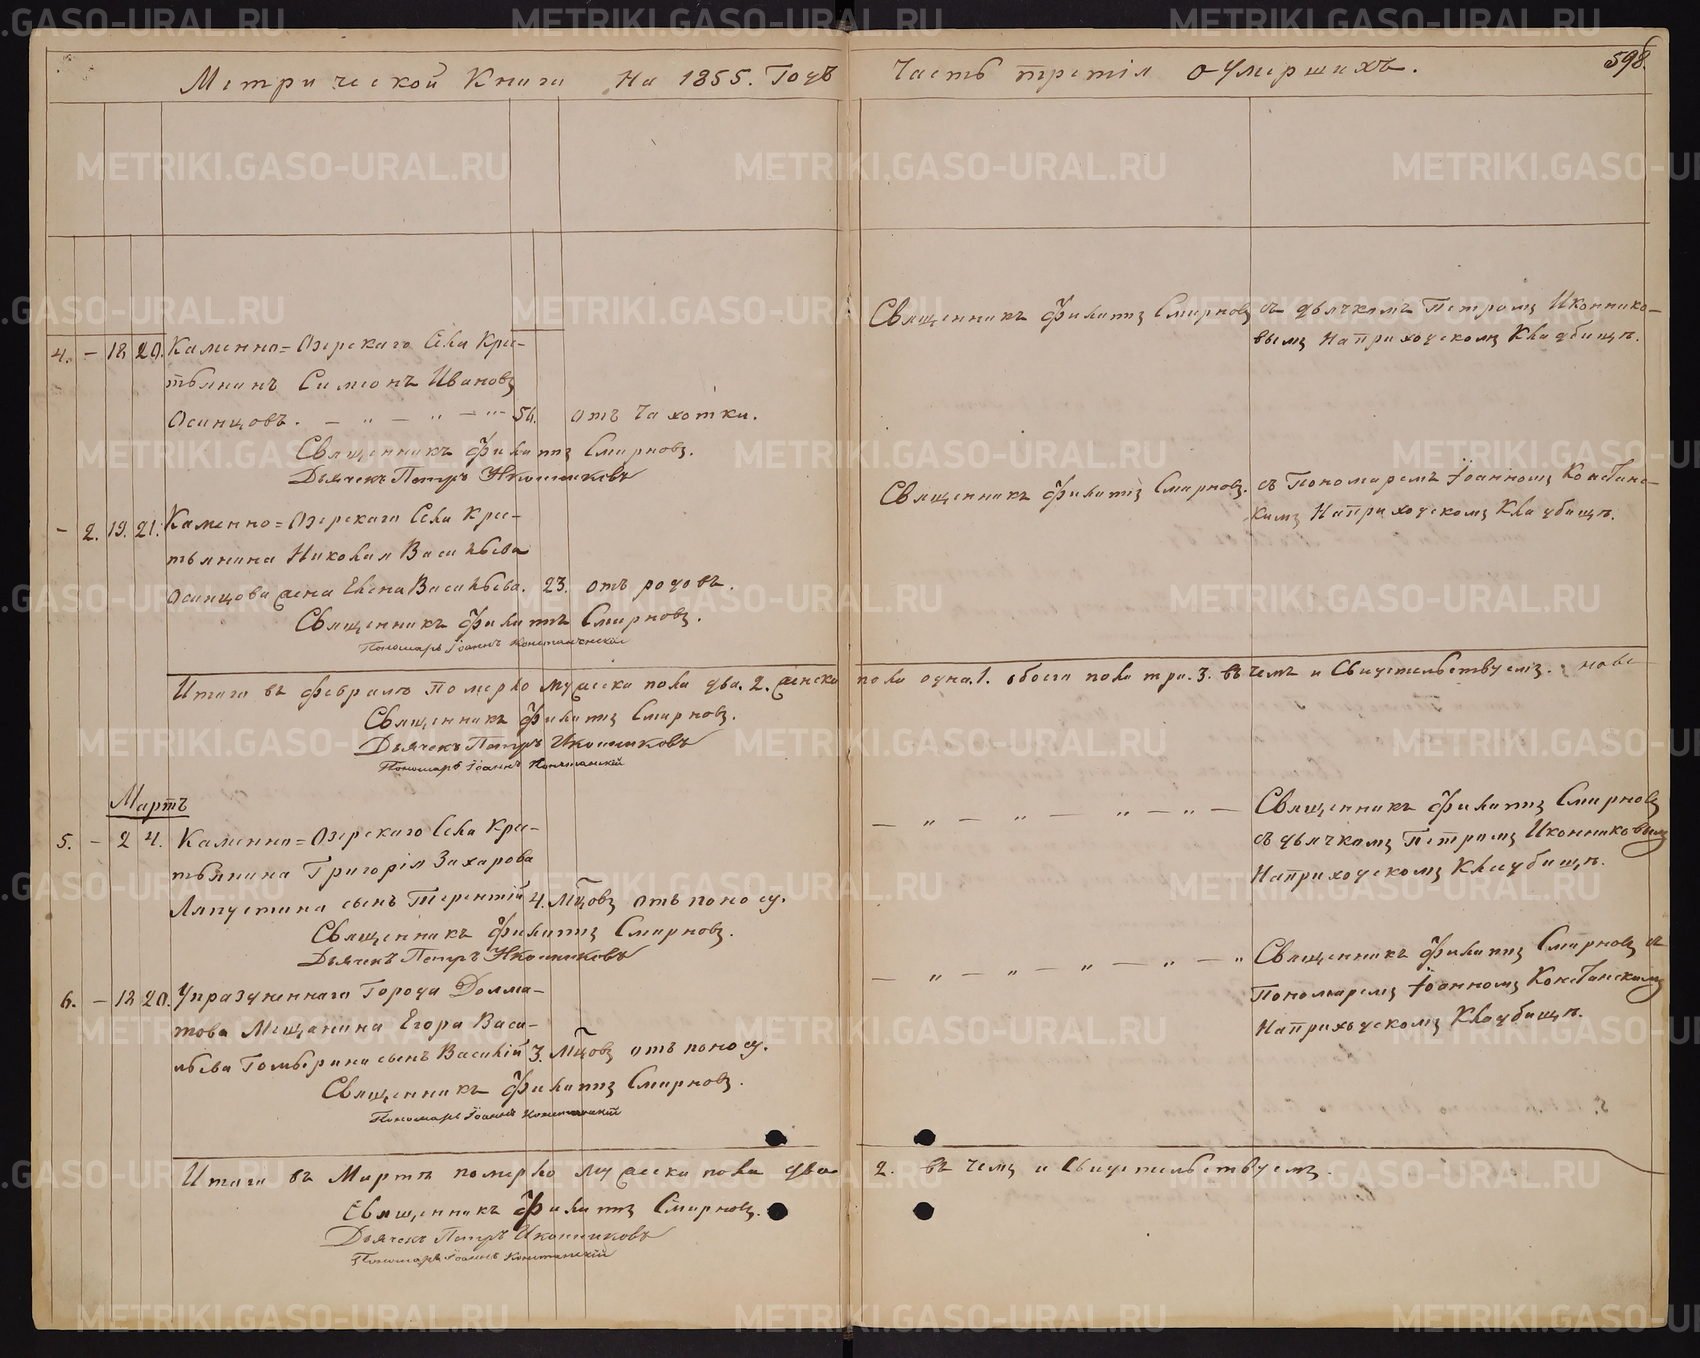 Метрической Книги на 1855. Годъ
Часть третія о умершихъ.
598.
4. — 18 20. Каменно=Озерскаго Села Кре-
стьянинъ Симеонъ Ивановъ
Осинцовъ. — „ — „ — „ — 56. отъ чахотки.
Священникъ Филиппъ Смирновъ.
Дьячекъ Петръ Иконниковъ
Священникъ Филиппъ Смирновъ съ дьячкомъ Петромъ Иконнико-
вымъ На приходскомъ Кладбищѣ.
— 2. 19. 21. Каменно=Озерскаго Села Кре-
стьянина Николая Васильева
Осинцова жена Елена Васильева. 23. отъ родовъ.
Священникъ Филиппъ Смирновъ.
Пономарь Іоаннъ Констанскій
Священникъ Филиппъ Смирновъ. съ Пономаремъ Іоанномъ Констанс-
кимъ На приходскомъ Кладбищѣ.
Итого въ февралѣ померло мужеска пола два. 2. женска пола одна. 1. обоего пола три. 3. въ чемъ и Свидетельствуемъ.
Священникъ Филиппъ Смирновъ.
Дьячекъ Петръ Иконниковъ
Пономарь Іоаннъ Констанскій
Мартъ
5. — 2 4. Каменно=Озерскаго Села Кре-
стьянина Григорія Захарова
Ляпустина сынъ Терентій 4. Мцовъ отъ поносу.
Священникъ Филиппъ Смирновъ.
Дьячекъ Петръ Иконниковъ
— „ — „ — „ — „ — Священникъ Филиппъ Смирновъ
съ дьячкомъ Петромъ Иконниковымъ
На приходскомъ Кладбищѣ.
6. — 18 20. Упраздненнаго Города Долма-
това Мещанина Егора Васи-
льева Гомберина сынъ Василій 3. Мцовъ отъ поносу.
Священникъ Филиппъ Смирновъ.
Пономарь Іоаннъ Констанскій
— „ — „ — „ — „ — „ Священникъ Филиппъ Смирновъ съ
Пономаремъ Іоанномъ Констанскимъ
На приходскомъ Кладбищѣ.
Итого въ Мартѣ померло мужеска пола два 2. въ чемъ и Свидетельствуемъ.
Священникъ Филиппъ Смирновъ.
Дьячекъ Петръ Иконниковъ
Пономарь Іоаннъ Констанскій
METRIKI.GASO-URAL.RU